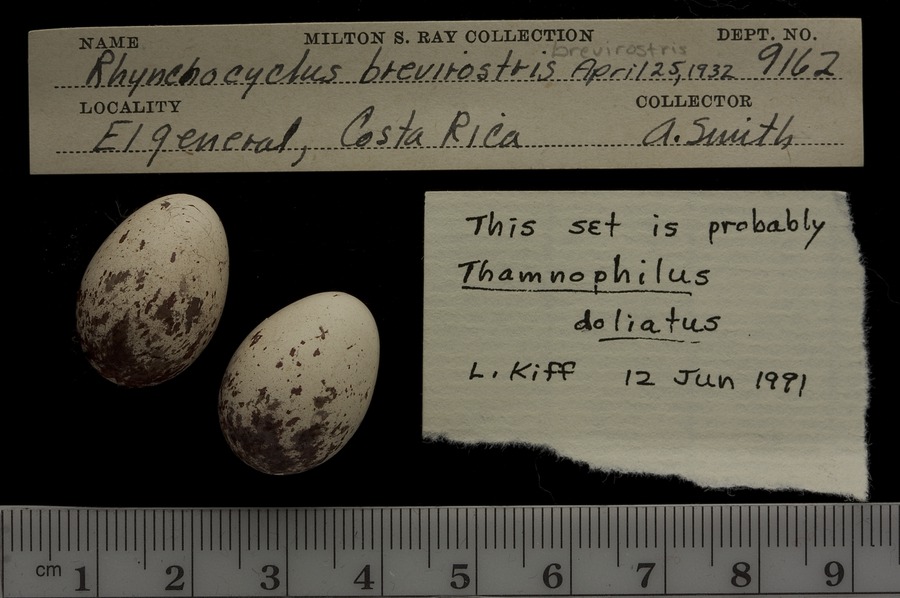 NAME MILTON S. RAY COLLECTION DEPT. NO.
brevirostris
Rhynchocyclus brevirostris April 25, 1932 9162
LOCALITY COLLECTOR
El general, Costa Rica A. Smith
This set is probably
Thamnophilus
doliatus
L. Kiff 12 Jun 1991
cm 1 2 3 4 5 6 7 8 9